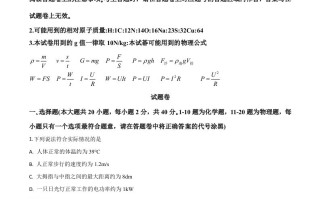 试题卷上无效。
2.可能用到的相对原子质量:H:1C:12N:14O:16Na:23S:32Cu:64
3.本试卷用到的 g 值一律取 10N/kg:本试卷可能用到的物理公式
ρ = m/V v = s/t G = mg P = F/S P = ρgh F浮 = ρgV排
W = FS P = W/t I = U/R W = UIt P = UI P = I²R P = U²/R
试题卷
一、选择题(本大题共 20 小题，每小题 2 分，共 40 分。1-10 题为化学题，11-20 题为物理题，每
小题只有一个选项最符合题意，请在答题卷中将正确答案的代号涂黑)
1.下列说法符合实际情况的是
A. 人体正常体温约为 39°C
B. 人正常步行的速度约为 1.2m/s
C. 大拇指与中指之间的最大距离约为 8dm
D. 一只日光灯正常工作的电功率约为 1kW